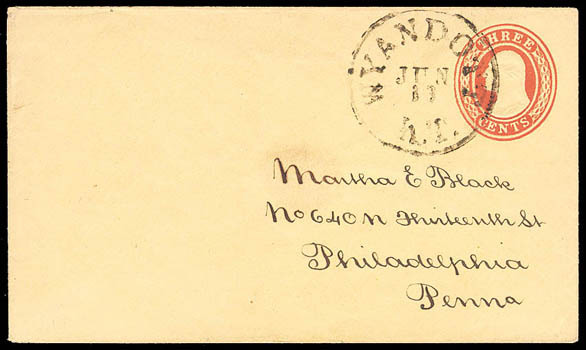 WYANDOTT
JUN
11
K.T.
THREE
CENTS
Martha E Black
No 640 N Thirteenth St
Philadelphia
Penna